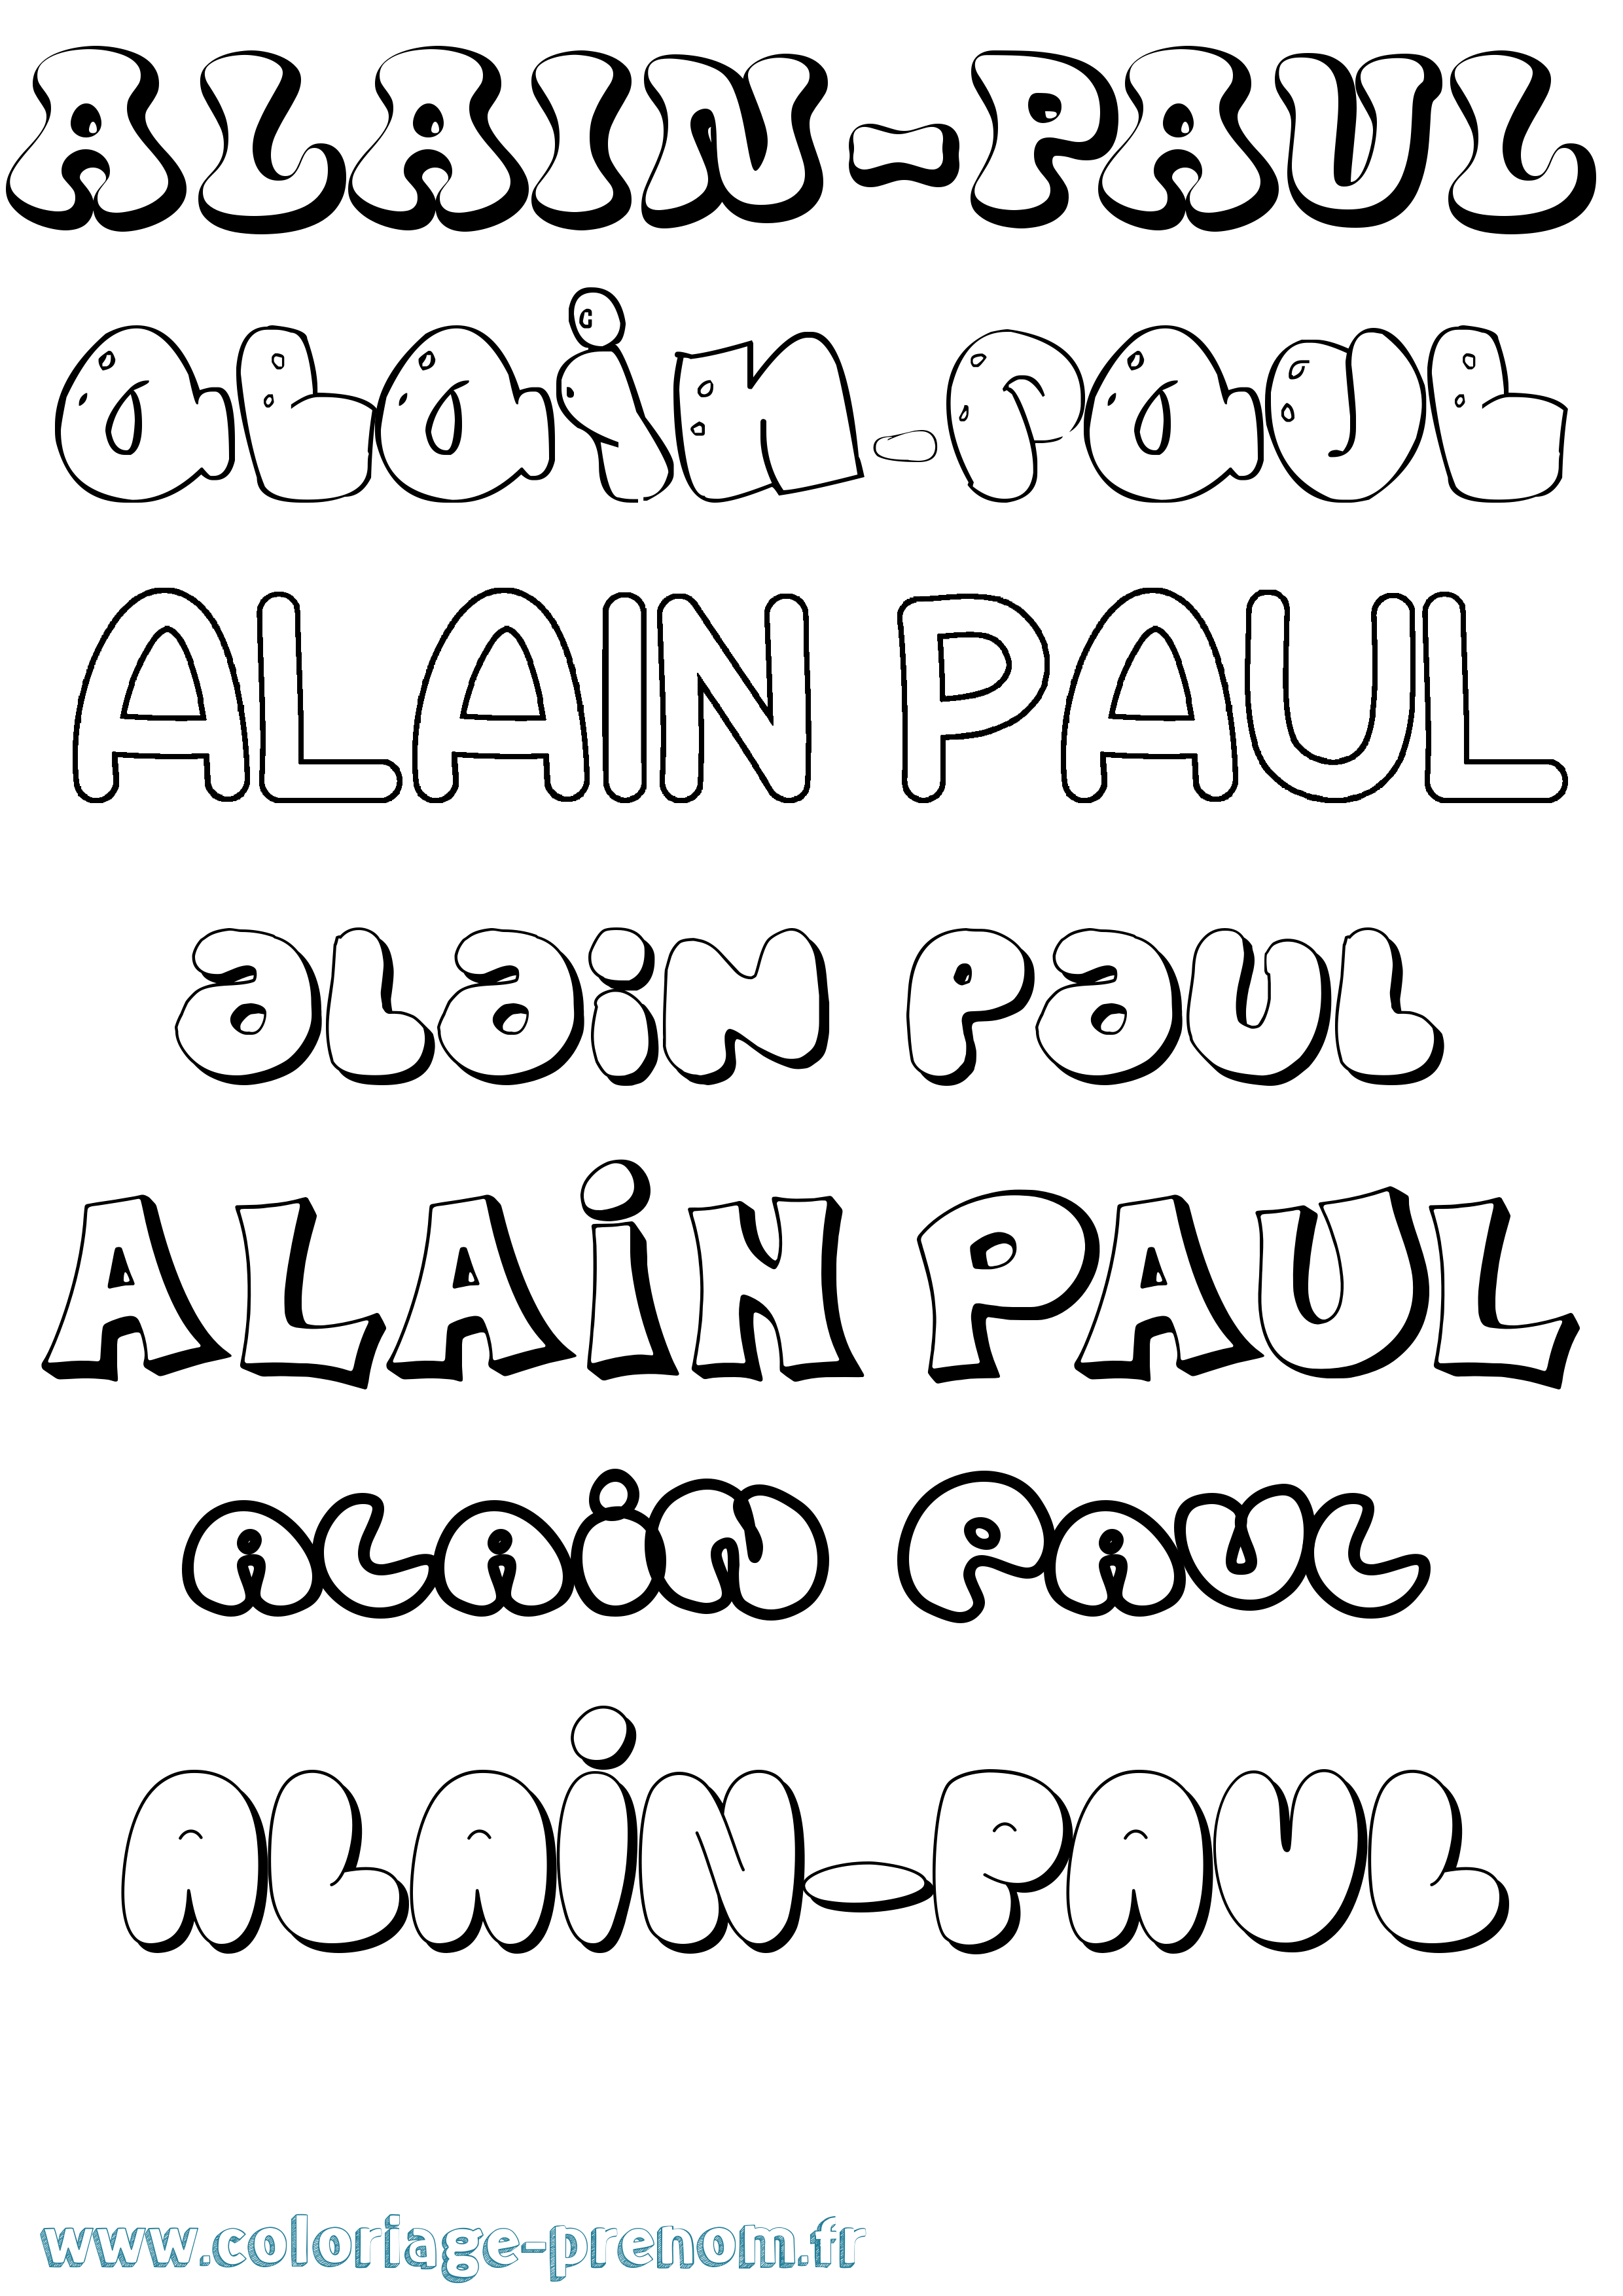 ALAIN-PAUL
alain-paul
ALAIN PAUL
alain paul
ALAiN PAUL
ALAiN PAUL
ALAiN-PAUL
www.coloriage-prenom.fr